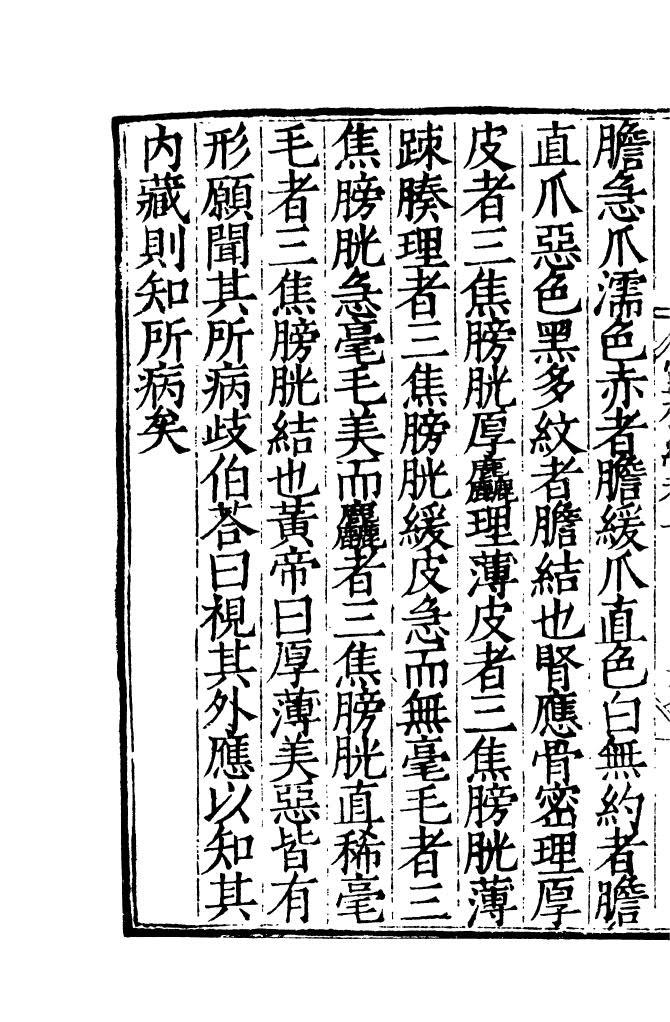 膽急爪濡色赤者膽緩爪直色白無約者膽
直爪惡色黑多紋者膽結也腎應骨密理厚
皮者三焦膀胱厚麤理薄皮者三焦膀胱薄
踈腠理者三焦膀胱緩皮急而無毫毛者三
焦膀胱急毫毛美而麤者三焦膀胱直稀毫
毛者三焦膀胱結也黃帝曰厚薄美惡皆有
形願聞其所病歧伯荅曰視其外應以知其
内藏則知所病矣